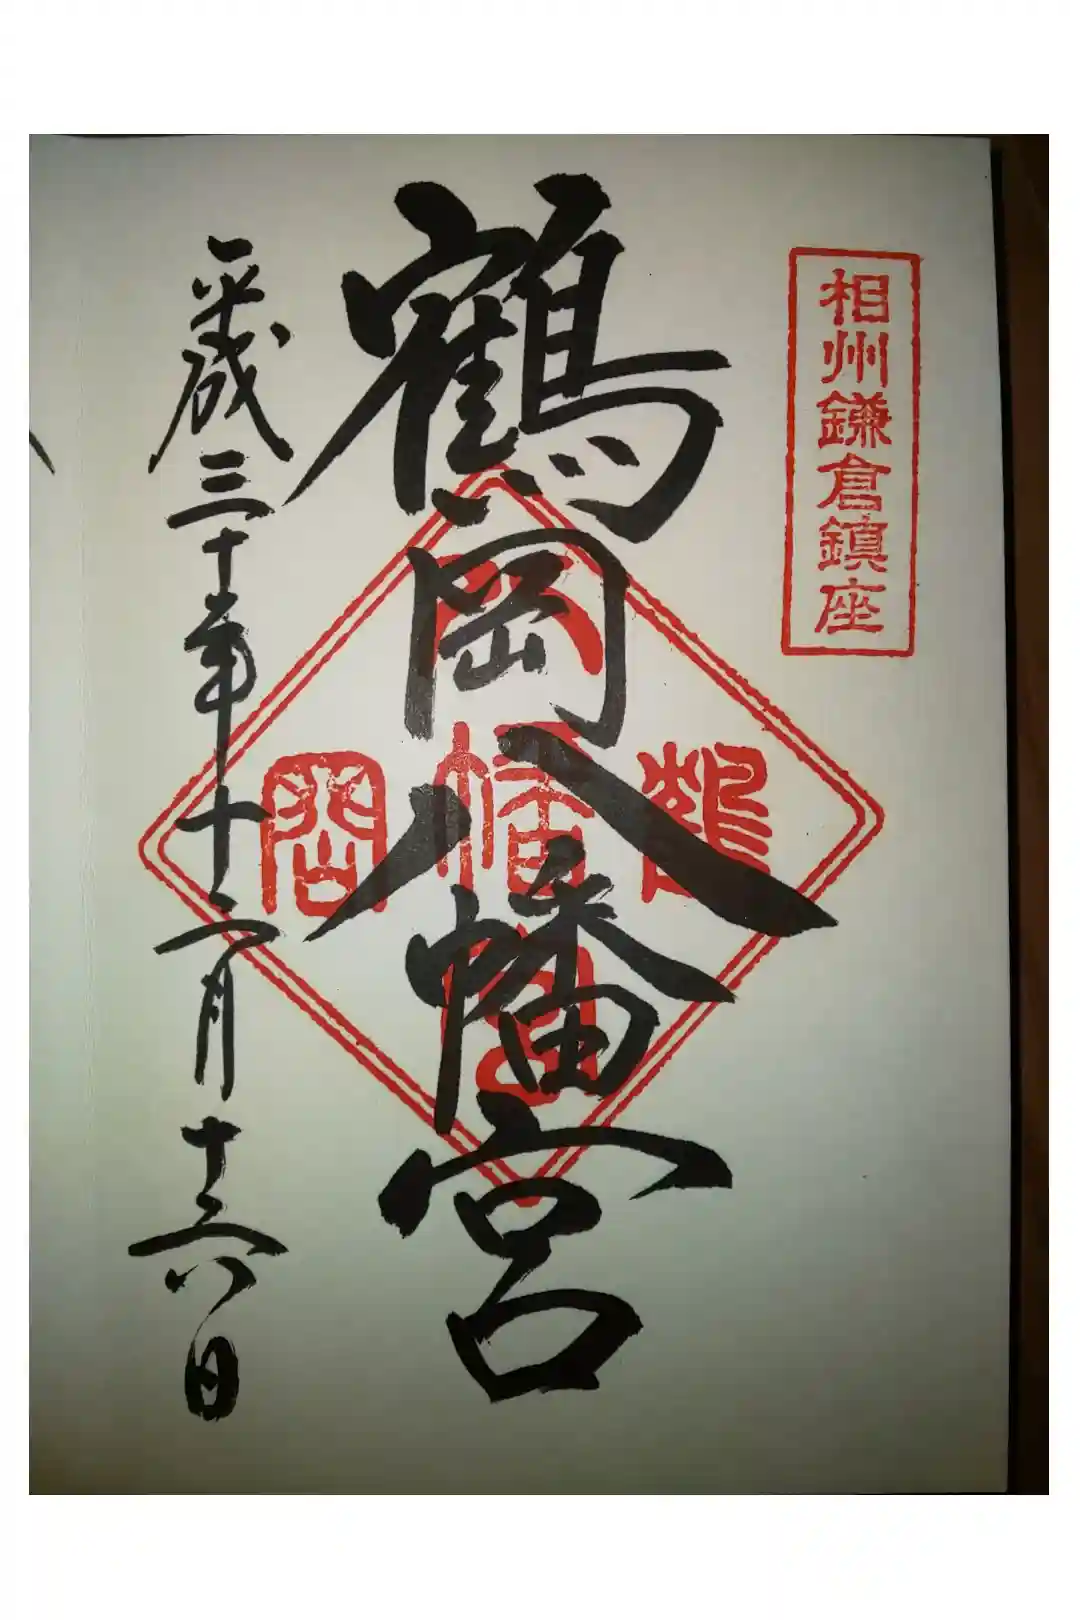 相州鎌倉鎮座
鶴岡八幡宮
鶴
岡
八
幡
宮
平成三十年十二月十六日